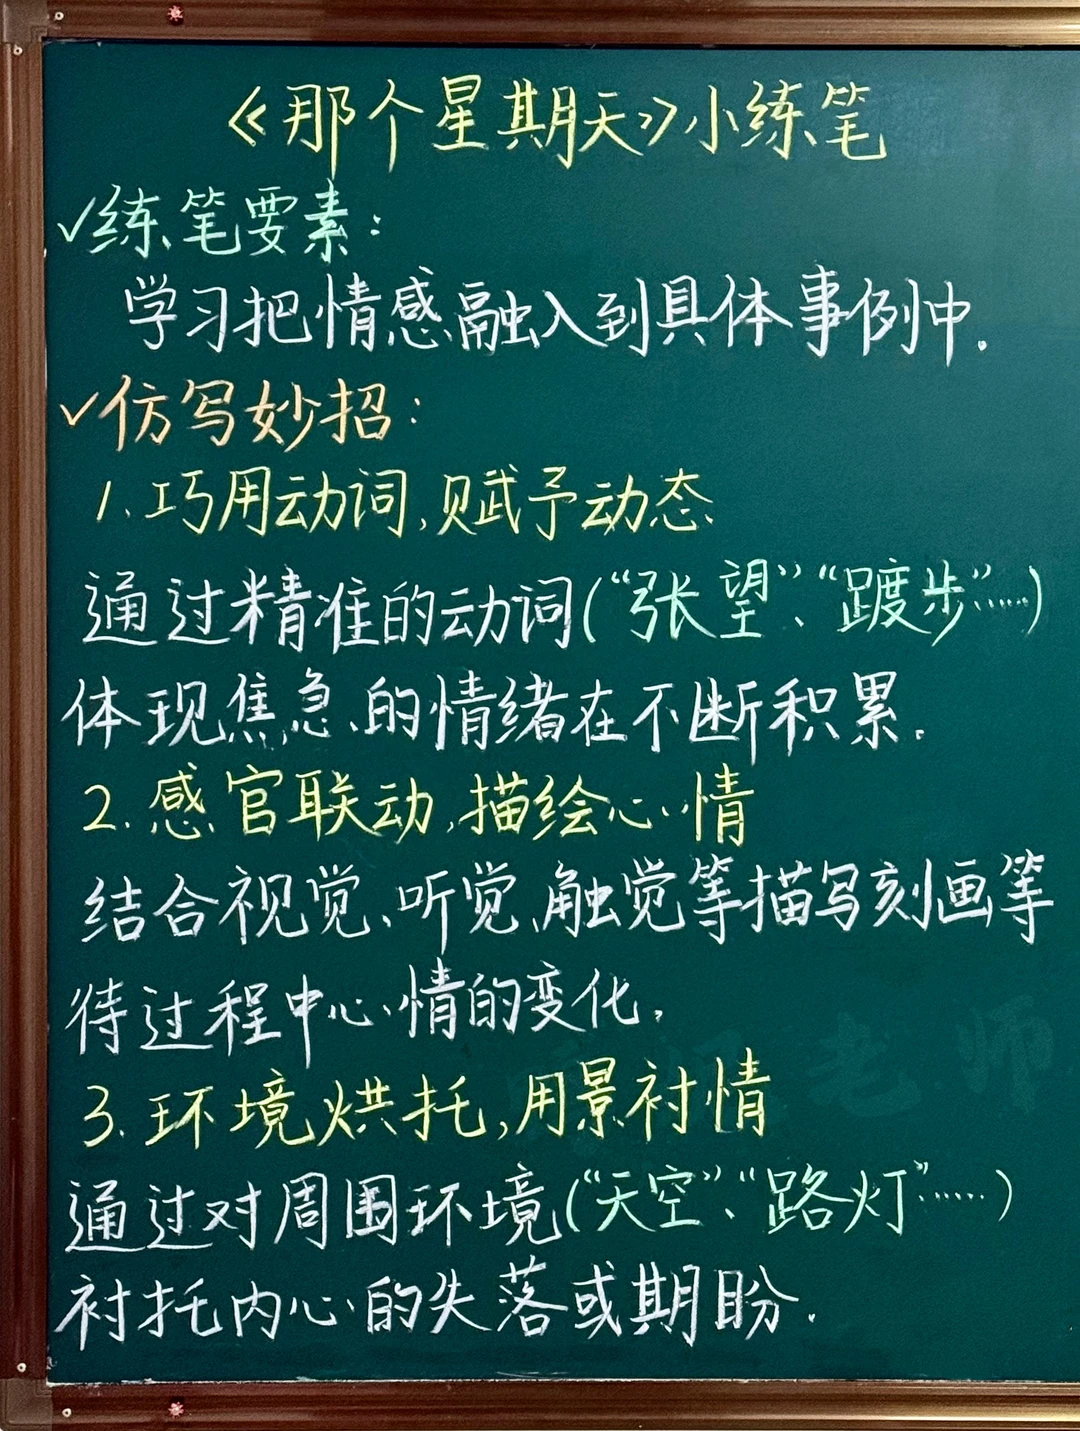 《那个星期天》小练笔
✓练笔要素：
学习把情感融入到具体事例中.
✓仿写妙招：
1.巧用动词,赋予动态
通过精准的动词(“张望”、“踱步”……)
体现焦急的情绪在不断积累.
2.感官联动,描绘心情
结合视觉、听觉、触觉等描写刻画等
待过程中心情的变化.
3.环境烘托,用景衬情
通过对周围环境(“天空”、“路灯”……)
衬托内心的失落或期盼.
老师